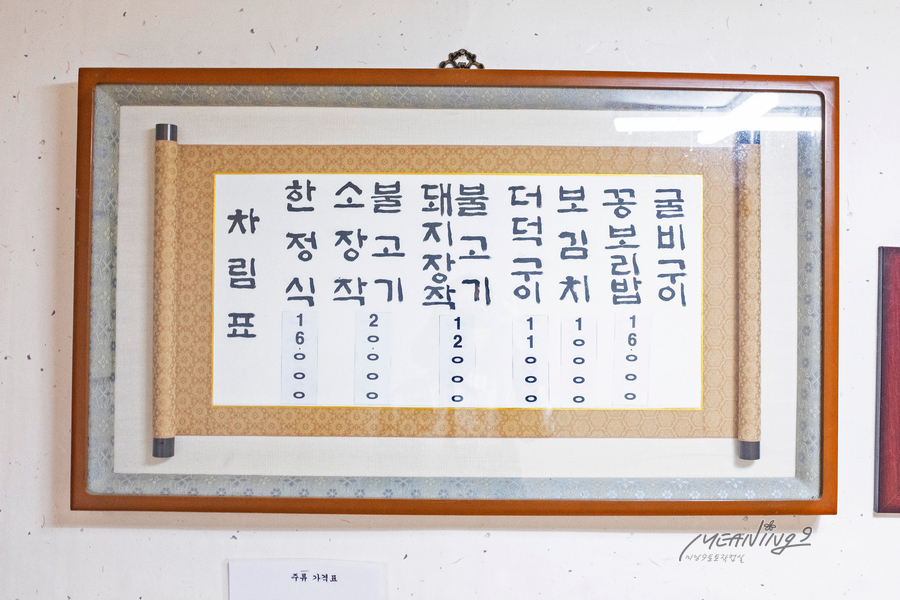 차림표
한정식 16.000
소장작불고기 20.000
돼지장작불고기 12.000
더덕구이 11.000
보김치 10.000
꽁보리밥 16.000
굴비구이
주류 가격표
MEANing9